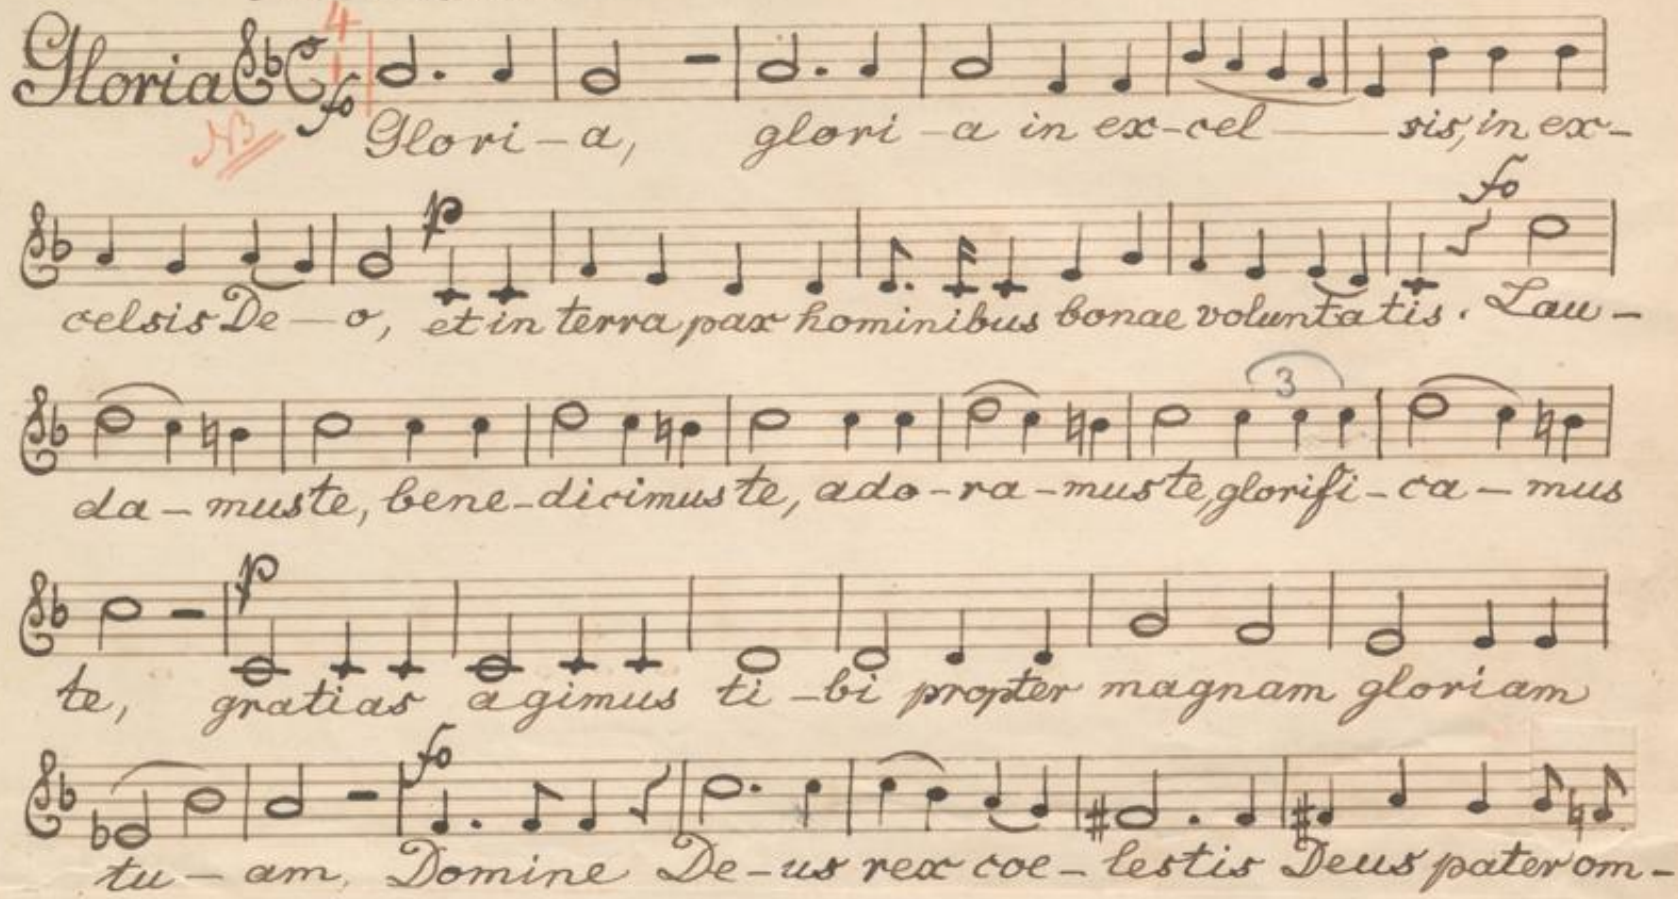 4
Gloria C fo
NB
Glori-a, glori-a in ex-cel — sis, in ex-
p fo
celsis De-o, et in terra pax hominibus bonae voluntatis. Lau-
3
da-mus te, bene-dicimus te, ado-ra-mus te, glorifi-ca-mus
p
te, gratias agimus ti-bi propter magnam gloriam
fo
tu-am, Domine De-us rex coe-lestis Deus pater om-